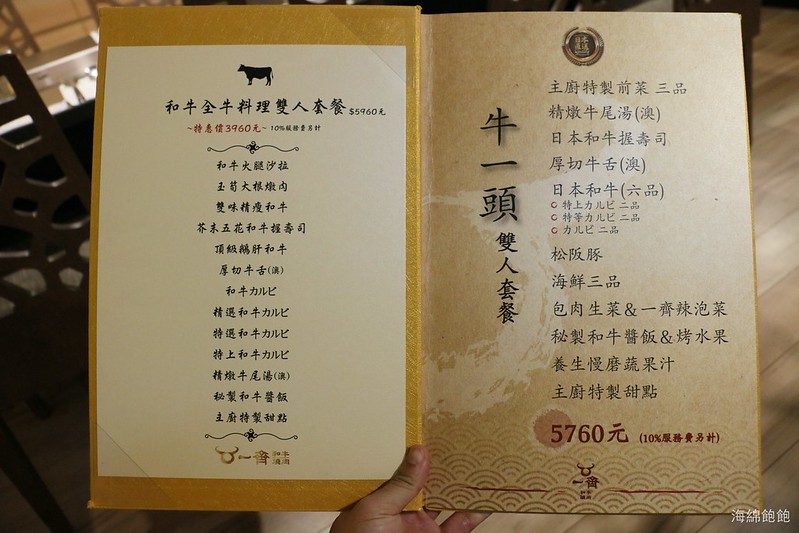 和牛全牛料理雙人套餐 $5960元
~特惠價3960元~ 10%服務費另計
和牛火腿沙拉
玉筍大根燉肉
雙味精瘦和牛
芥末五花和牛握壽司
頂級鵝肝和牛
厚切牛舌(澳)
和牛カルビ
精選和牛カルビ
特選和牛カルビ
特上和牛カルビ
精燉牛尾湯(澳)
秘製和牛醬飯
主廚特製甜點
一齊
牛一頭 雙人套餐
主廚特製前菜 三品
精燉牛尾湯(澳)
日本和牛握壽司
厚切牛舌(澳)
日本和牛(六品)
特上カルビ 二品
特等カルビ 二品
カルビ 二品
松阪豚
海鮮三品
包肉生菜&一齊辣泡菜
秘製和牛醬飯&烤水果
養生慢磨蔬果汁
主廚特製甜點
5760元 (10%服務費另計)
一齊
海綿飽飽